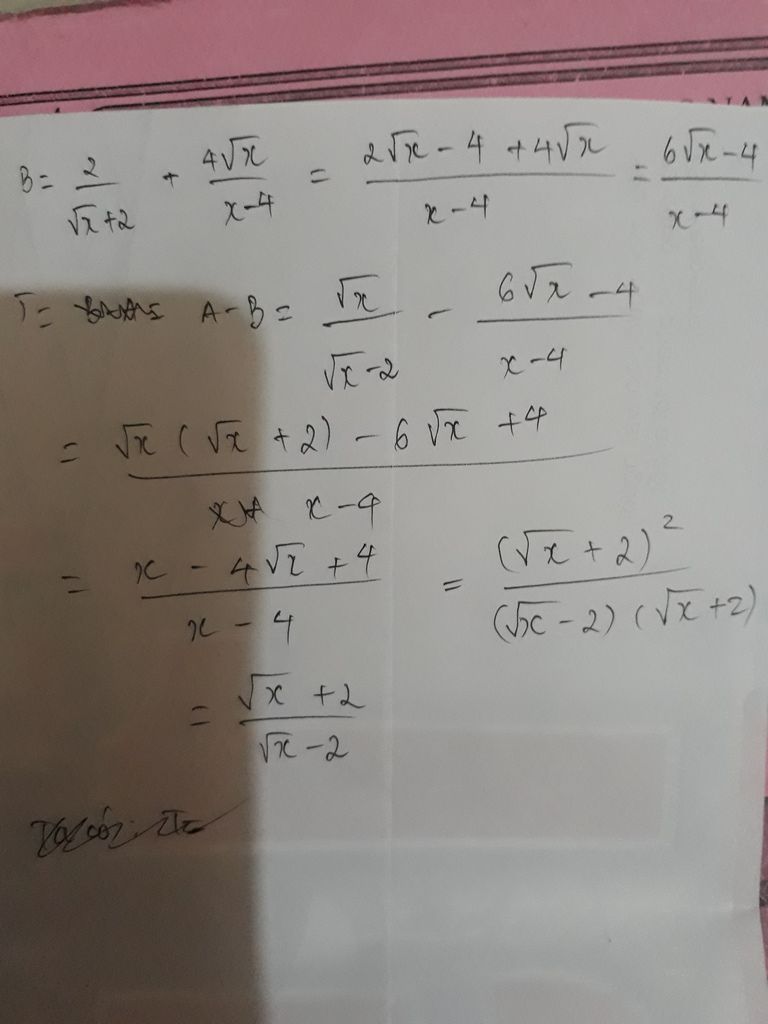 B = 2/(√x+2) + 4√x/(x-4) = (2√x - 4 + 4√x)/(x-4) = (6√x-4)/(x-4)
T = A-B = √x/(√x-2) - (6√x-4)/(x-4)
= (√x(√x+2) - 6√x+4)/(x-4)
= (x - 4√x+4)/(x-4) = (√x+2)²/((√x-2)(√x+2))
= (√x+2)/(√x-2)